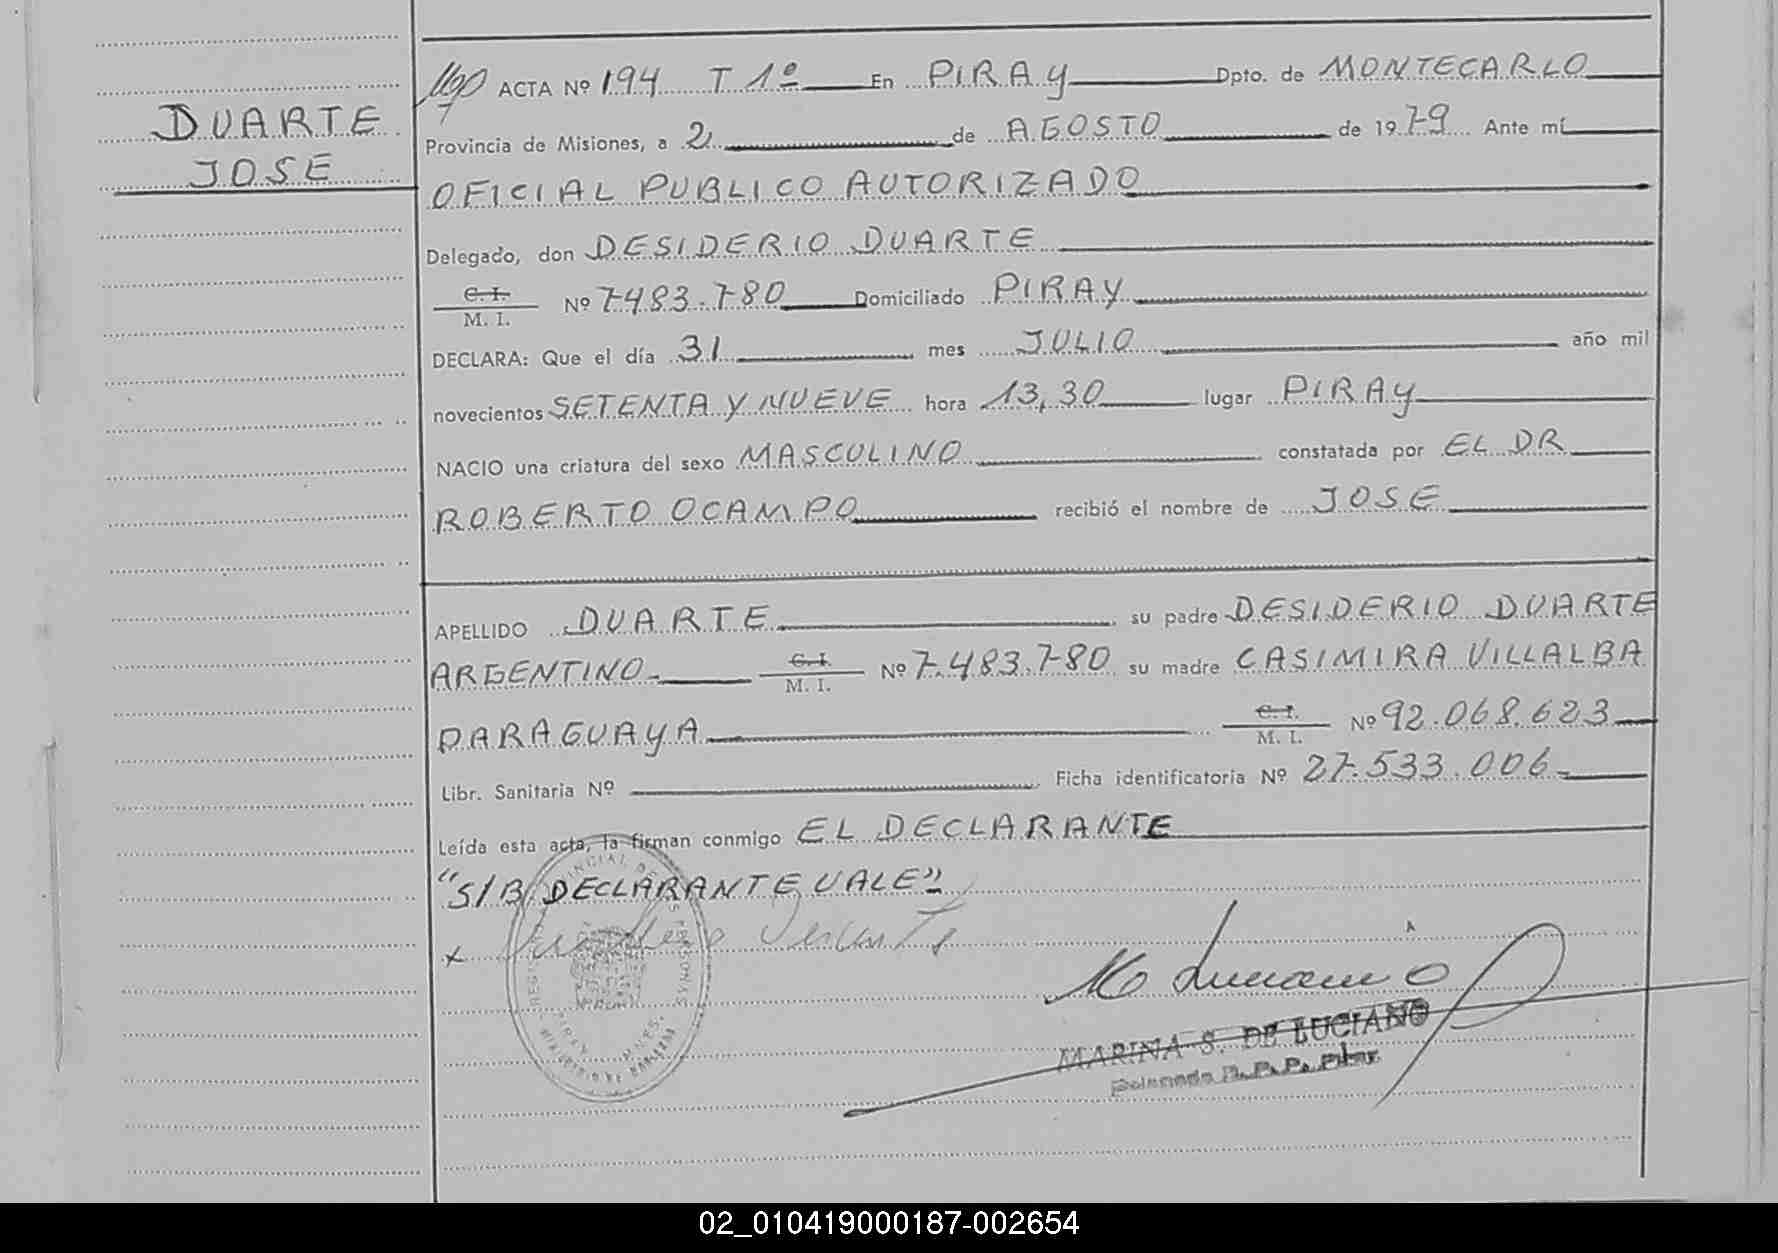 DUARTE
JOSE
ACTA Nº 194 T 1º En PIRAY Dpto. de MONTECARLO
Provincia de Misiones, a 2 de AGOSTO de 1979 Ante mí
OFICIAL PUBLICO AUTORIZADO
Delegado, don DESIDERIO DUARTE
C. I.
M. I. Nº 7483.780 Domiciliado PIRAY
DECLARA: Que el día 31 mes JULIO año mil
novecientos SETENTA Y NUEVE hora 13,30 lugar PIRAY
NACIO una criatura del sexo MASCULINO constatada por EL DR
ROBERTO OCAMPO recibió el nombre de JOSE
APELLIDO DUARTE su padre DESIDERIO DUARTE
ARGENTINO C. I. M. I. Nº 7.483.780 su madre CASIMIRA VILLALBA
PARAGUAYA C. I. M. I. Nº 92.068.623
Libr. Sanitaria Nº Ficha identificatoria Nº 27.533.006
Leída esta acta, la firman conmigo EL DECLARANTE
"S/B DECLARANTE VALE"
x
MARINA S. DE LUCIANO
02_010419000187-002654